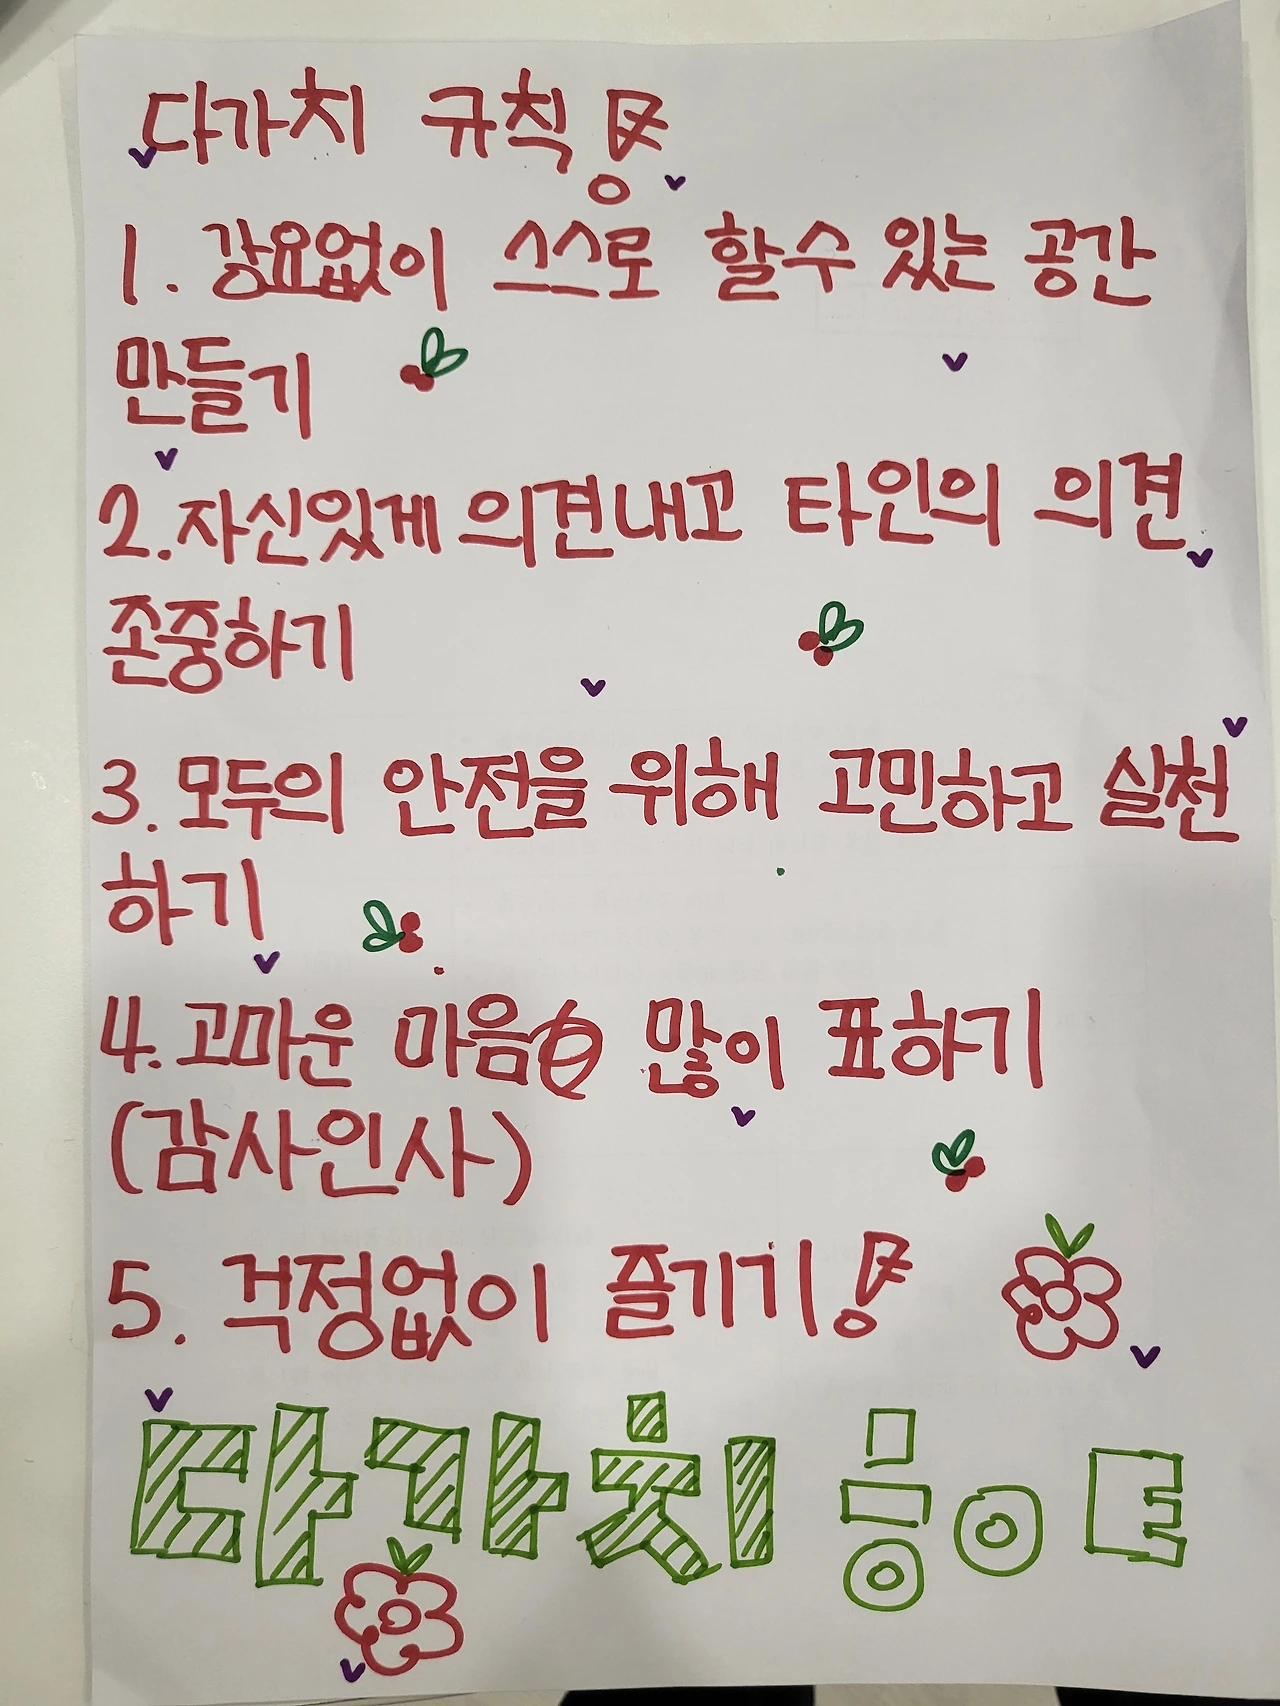 다가치 규칙!
1. 강요없이 스스로 할수 있는 공간
만들기
2. 자신있게 의견내고 타인의 의견
존중하기
3. 모두의 안전을 위해 고민하고 실천
하기
4. 고마운 마음 많이 표하기
(감사인사)
5. 걱정없이 즐기기!
다가치 ㅎㅇㅌ